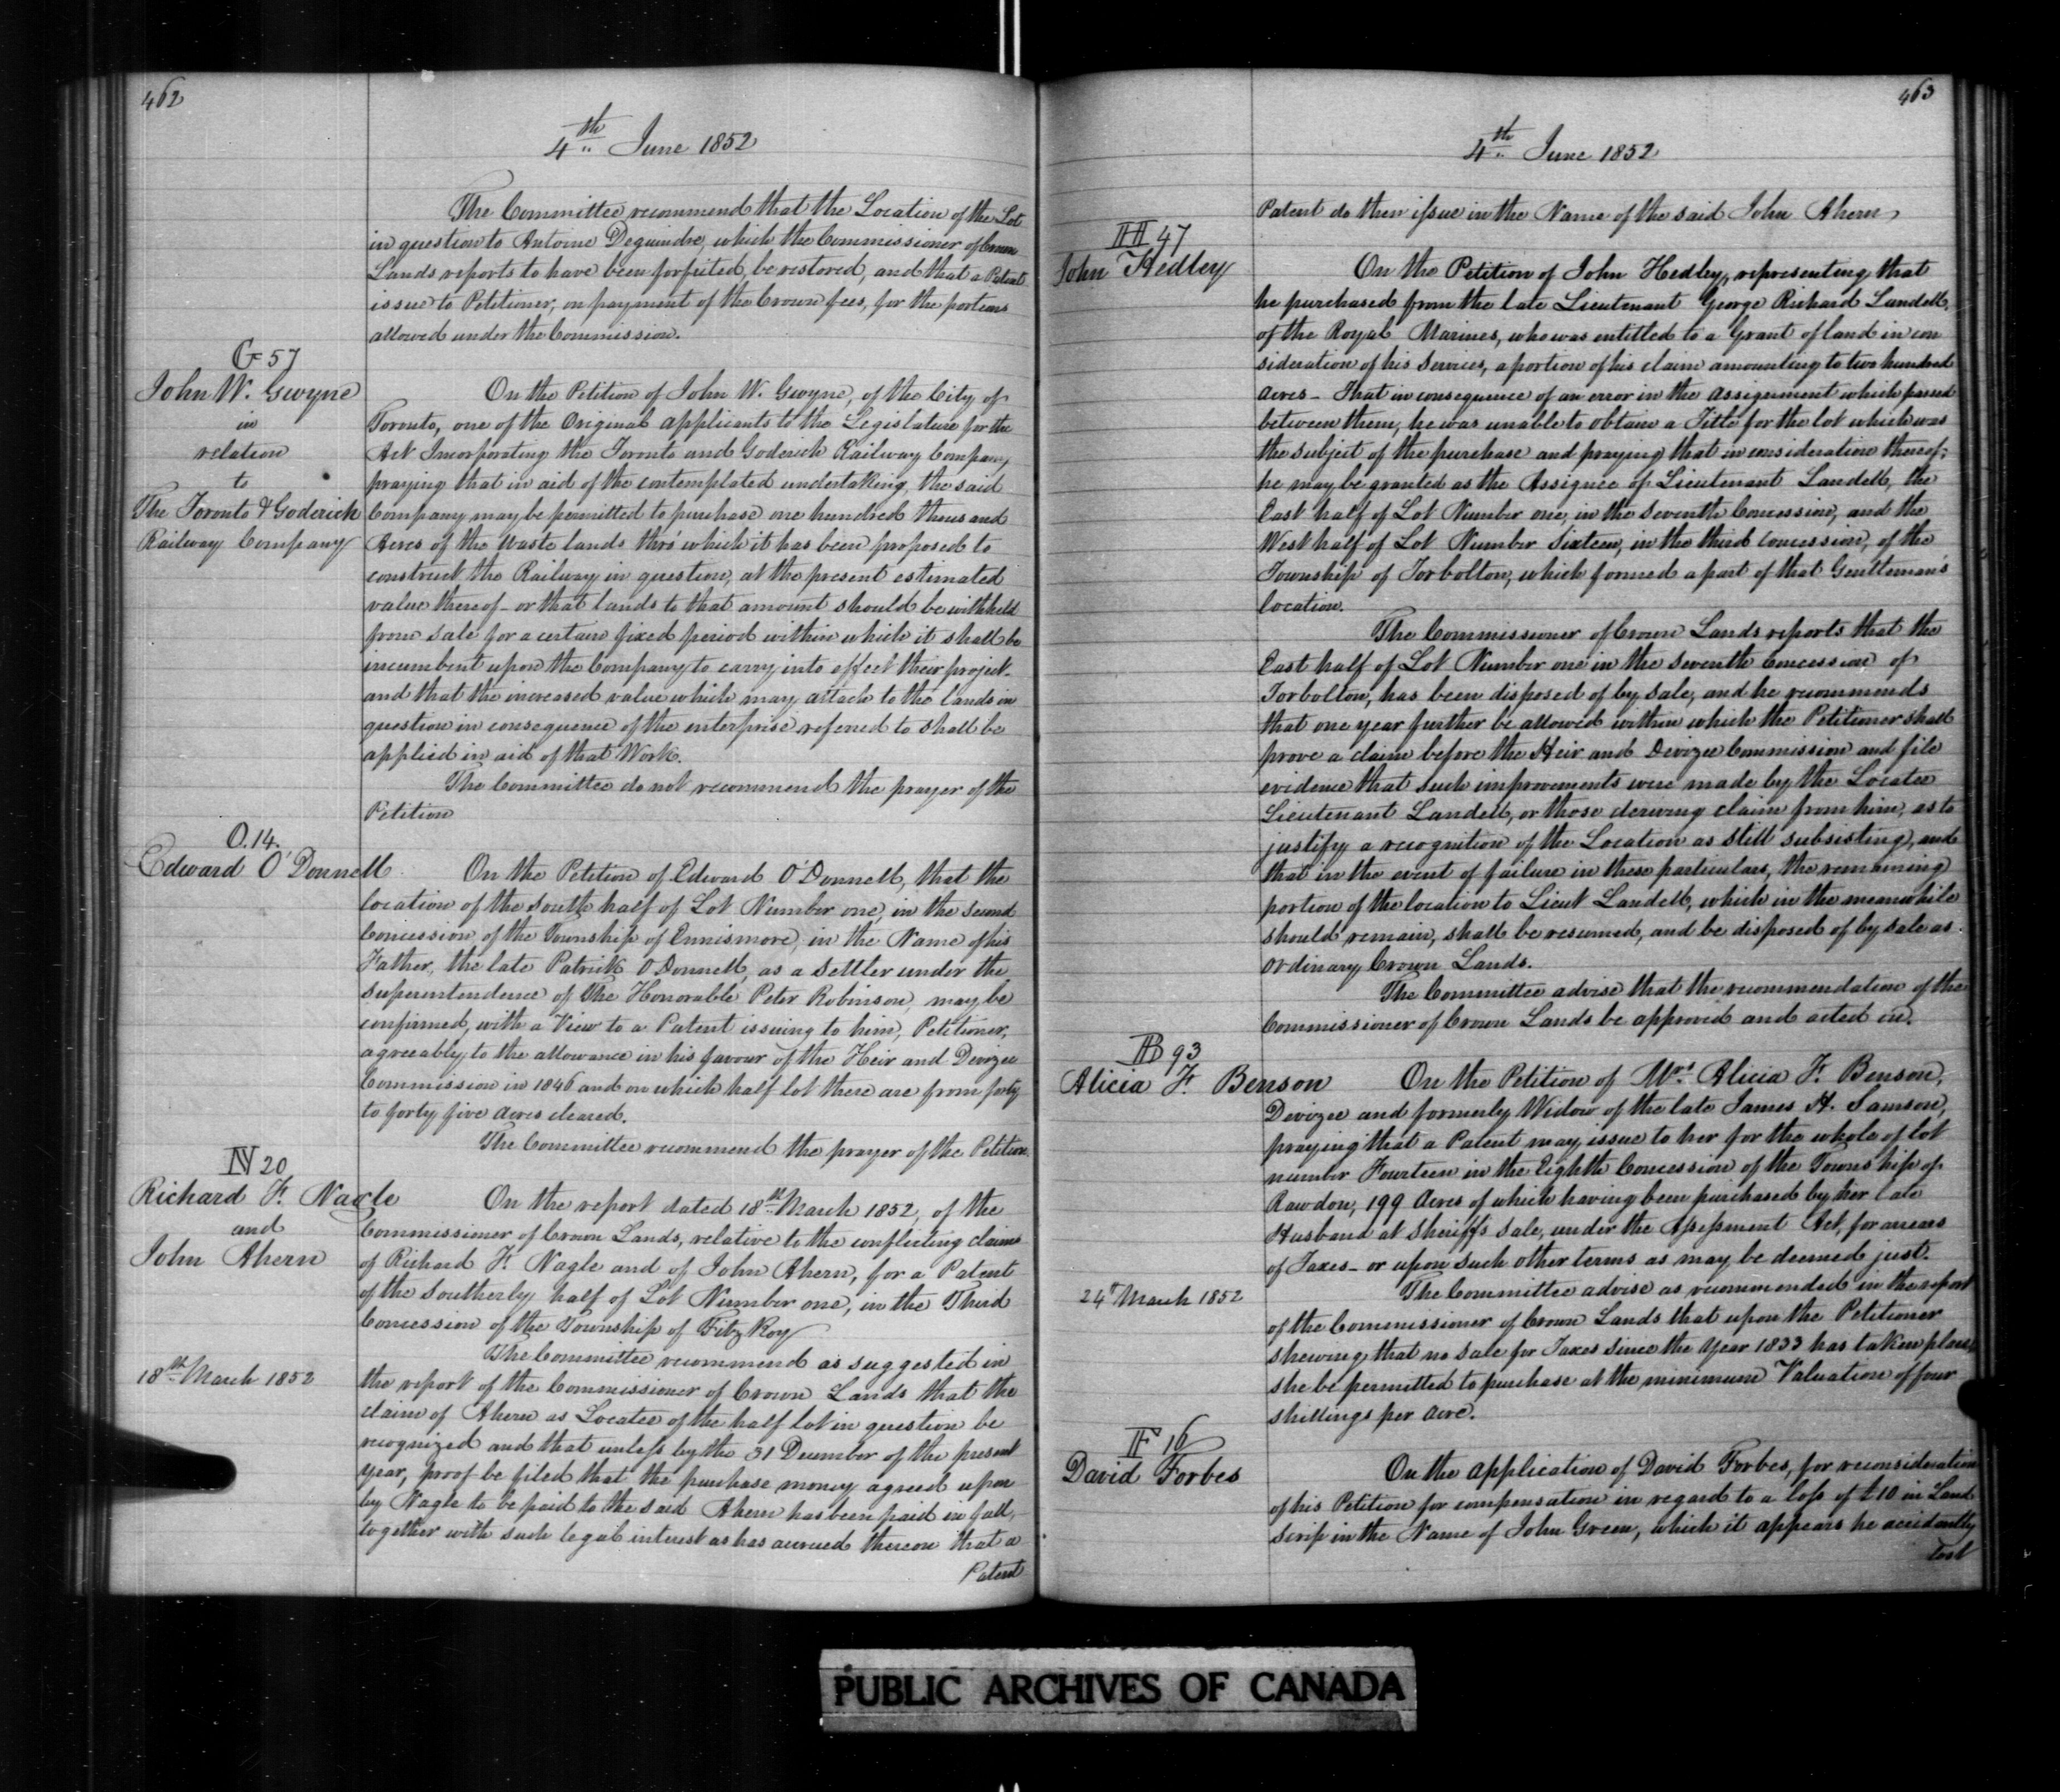 462
4th June 1852
The Committee recommend that the Location of the Lot
in question to Antoine Deguindre, which the Commissioner of Crown
Lands reports to have been forfeited, be restored, and that a Patent
issue to Petitioner, on payment of the Crown fees, for the portions
allowed under the Commission.
G 57
John W. Gwyne
in
relation
to
The Toronto & Goderich
Railway Company
On the Petition of John W. Gwyne, of the City of
Toronto, one of the Original applicants to the Legislature for the
Act Incorporating the Toronto and Goderich Railway Company,
praying that in aid of the contemplated undertaking, the said
Company may be permitted to purchase one hundred thousand
Acres of the Waste lands thro' which it has been proposed to
construct the Railway in question, at the present estimated
value thereof - or that lands to that amount should be withheld
from sale for a certain fixed period within which it shall be
incumbent upon the Company to carry into effect their project -
and that the increased value which may attach to the lands in
question in consequence of the enterprise referred to shall be
applied in aid of that Work.
The Committee do not recommend the prayer of the
Petition
O. 14.
Edward O'Donnell
On the Petition of Edward O'Donnell, that the
location of the South half of Lot Number one, in the second
Concession of the Township of Ennismore, in the Name of his
Father, the late Patrick O'Donnell, as a Settler under the
superintendence of The Honorable Peter Robinson, may be
confirmed, with a View to a Patent issuing to him, Petitioner,
agreeably to the allowance in his favour of the Heir and Devizee
Commission in 1846 and on which half lot there are from forty
to forty five Acres cleared.
The Committee recommend the prayer of the Petition.
N 20
Richard F. Nagle
and
John Ahern
On the report dated 18th March 1852, of the
Commissioner of Crown Lands, relative to the conflicting claims
of Richard F. Nagle and of John Ahern, for a Patent
of the Southerly half of Lot Number one, in the Third
Concession of the Township of Fitz Roy
18th March 1852
The Committee recommend as suggested in
the report of the Commissioner of Crown Lands that the
claim of Ahern as Locatee of the half lot in question be
recognized and that unless by the 31 December of the present
Year, proof be filed that the purchase money agreed upon
by Nagle to be paid to the said Ahern has been paid in full,
together with such legal interest as has accrued thereon that a
Patent
463
4th June 1852
Patent do then issue in the Name of the said John Ahern
H 47
John Hedley
On the Petition of John Hedley, representing that
he purchased from the late Lieutenant George Richard Landell,
of the Royal Marines, who was entitled to a Grant of land in con
sideration of his Services, a portion of his claim amounting to two hundred
Acres - That in consequence of an error in the Assignment which passed
between them, he was unable to obtain a Title for the lot which was
the subject of the purchase and praying that in consideration thereof,
he may be granted as the Assignee of Lieutenant Landell, the
East half of Lot Number one, in the Seventh Concession, and the
West half of Lot Number Sixteen, in the third Concession, of the
Township of Torbolton, which formed a part of that Gentleman's
location.
The Commissioner of Crown Lands reports that the
East half of Lot Number one in the Seventh Concession of
Torbolton, has been disposed of by Sale, and he recommends
that one year further be allowed within which the Petitioner shall
prove a claim before the Heir and Devizee Commission and file
evidence that such improvements were made by the Locatee
Lieutenant Landell, or those deriving claim from him, as to
justify a recognition of the Location as still subsisting, and
that in the event of failure in these particulars, the remaining
portion of the location to Lieut Landell, which in the meanwhile
should remain, shall be resumed, and be disposed of by sale as
ordinary Crown Lands.
The Committee advise that the recommendation of the
Commissioner of Crown Lands be approved and acted on.
B 93
Alicia F. Benson
On the Petition of Mrs Alicia F. Benson,
Devizee and formerly Widow of the late James H. Samson,
praying that a Patent may issue to her for the whole of lot
number Fourteen in the Eighth Concession of the Township of
Rawdon, 199 Acres of which having been purchased by her late
Husband at Sheriff's Sale, under the Assessment Act, for arrears
of Taxes - or upon such other terms as may be deemed just.
24 March 1852
The Committee advise as recommended in the report
of the Commissioner of Crown Lands that upon the Petitioner
shewing that no sale for Taxes since the Year 1833 has taken place,
she be permitted to purchase at the minimum Valuation of four
shillings per Acre.
F 16
David Forbes
On the application of David Forbes, for reconsideration
of his Petition for compensation in regard to a loss of £10 in Land
Scrip in the Name of John Green, which it appears he accidently
lost
PUBLIC ARCHIVES OF CANADA